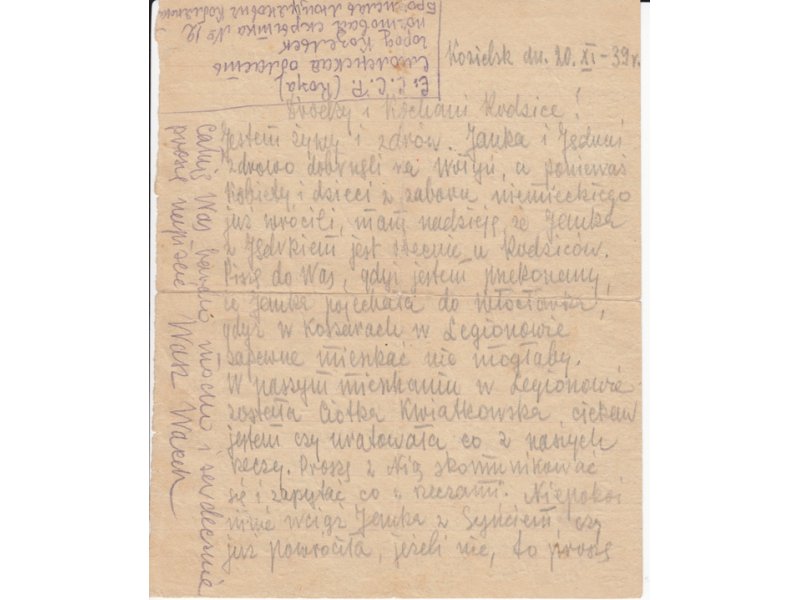 С.С.С.Р. (Rosja)
Смоленская область
город Козельск
почтовый скрытка № 12
Kozielsk dn. 20. XI – 39 r.
Drodzy i Kochani Rodzice!
Jestem żywy i zdrów. Janka i Jędruś
zdrowo dobrnęli na Wołyń, a ponieważ
kobiety i dzieci z zaboru niemieckiego
już wróciły, mam nadzieję, że Janka
z Jędrkiem jest obecnie u Rodziców.
Piszę do Was, gdyż jestem przekonany,
że Janka pojechała do Włocławka,
gdyż w Koszarach w Legionowie
zapewne mieszkać nie mogłaby.
W naszym mieszkaniu w Legionowie
została Ciotka Kwiatkowska, ciekaw
jestem czy uratowała co z naszych
rzeczy. Proszę z Nią skomunikować
się i zapytać co z rzeczami. Niepokoi
mnie wciąż Janka z Synciem czy
już powróciła, jeżeli nie, to proszę
Całuję Was bardzo mocno i serdecznie
proszę napiszcie Wasz Wacek